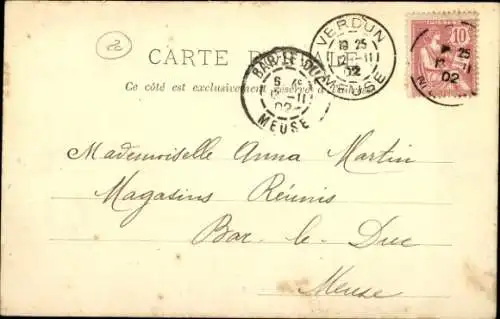 2
CARTE
Ce côté est exclusivement réservé à
VERDUN
19 25
12 -11
02
MEUSE
BAR-LE-DUC
12 -11
02
MEUSE
10
25
11
02
M
Mademoiselle Anna Martin
Magasins Réunis
Bar-le-Duc
Meuse